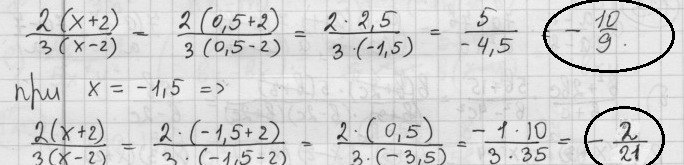 2(x+2)/3(x-2) = 2(0,5+2)/3(0,5-2) = 2·2,5/3·(-1,5) = 5/-4,5 = -10/9.
при x = -1,5 =>
2(x+2)/3(x-2) = 2·(-1,5+2)/3·(-1,5-2) = 2·(0,5)/3·(-3,5) = -1·10/3·35 = -2/21